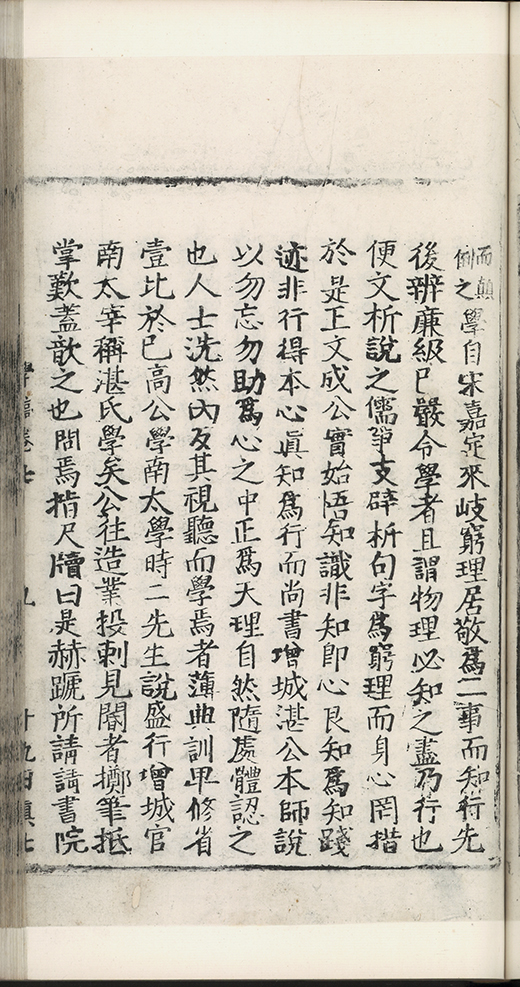 而顛
倒之學自宋嘉定來岐窮理居敬爲二事而知行先
後辨廉級已嚴令學者且謂物理必知之盡乃行也
便文析說之儒爭支辟析句字爲窮理而身心罔措
於是王文成公實始悟知識非知卽心良知爲知踐
迹非行得本心眞知爲行而尚書增城湛公本師說
以勿忘勿助爲心之中正爲天理自然隨處體認之
也人士洗然內反其視聽而學焉者薄典訓卑修省
壹比於已高公學南太學時二先生說盛行增城官
南太宰稱湛氏學矣公往造業投刺見閽者擲筆抵
掌歎蓋歆之也問焉指尺牘曰是赫蹏所請請書院
卷七
九